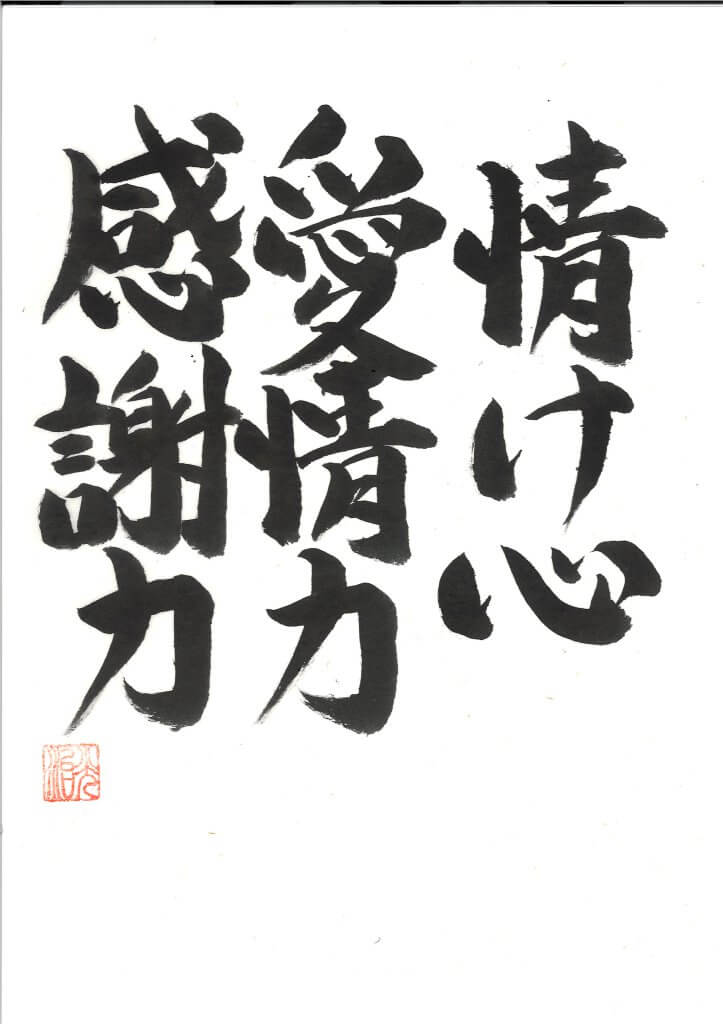 情け心
愛情力
感謝力